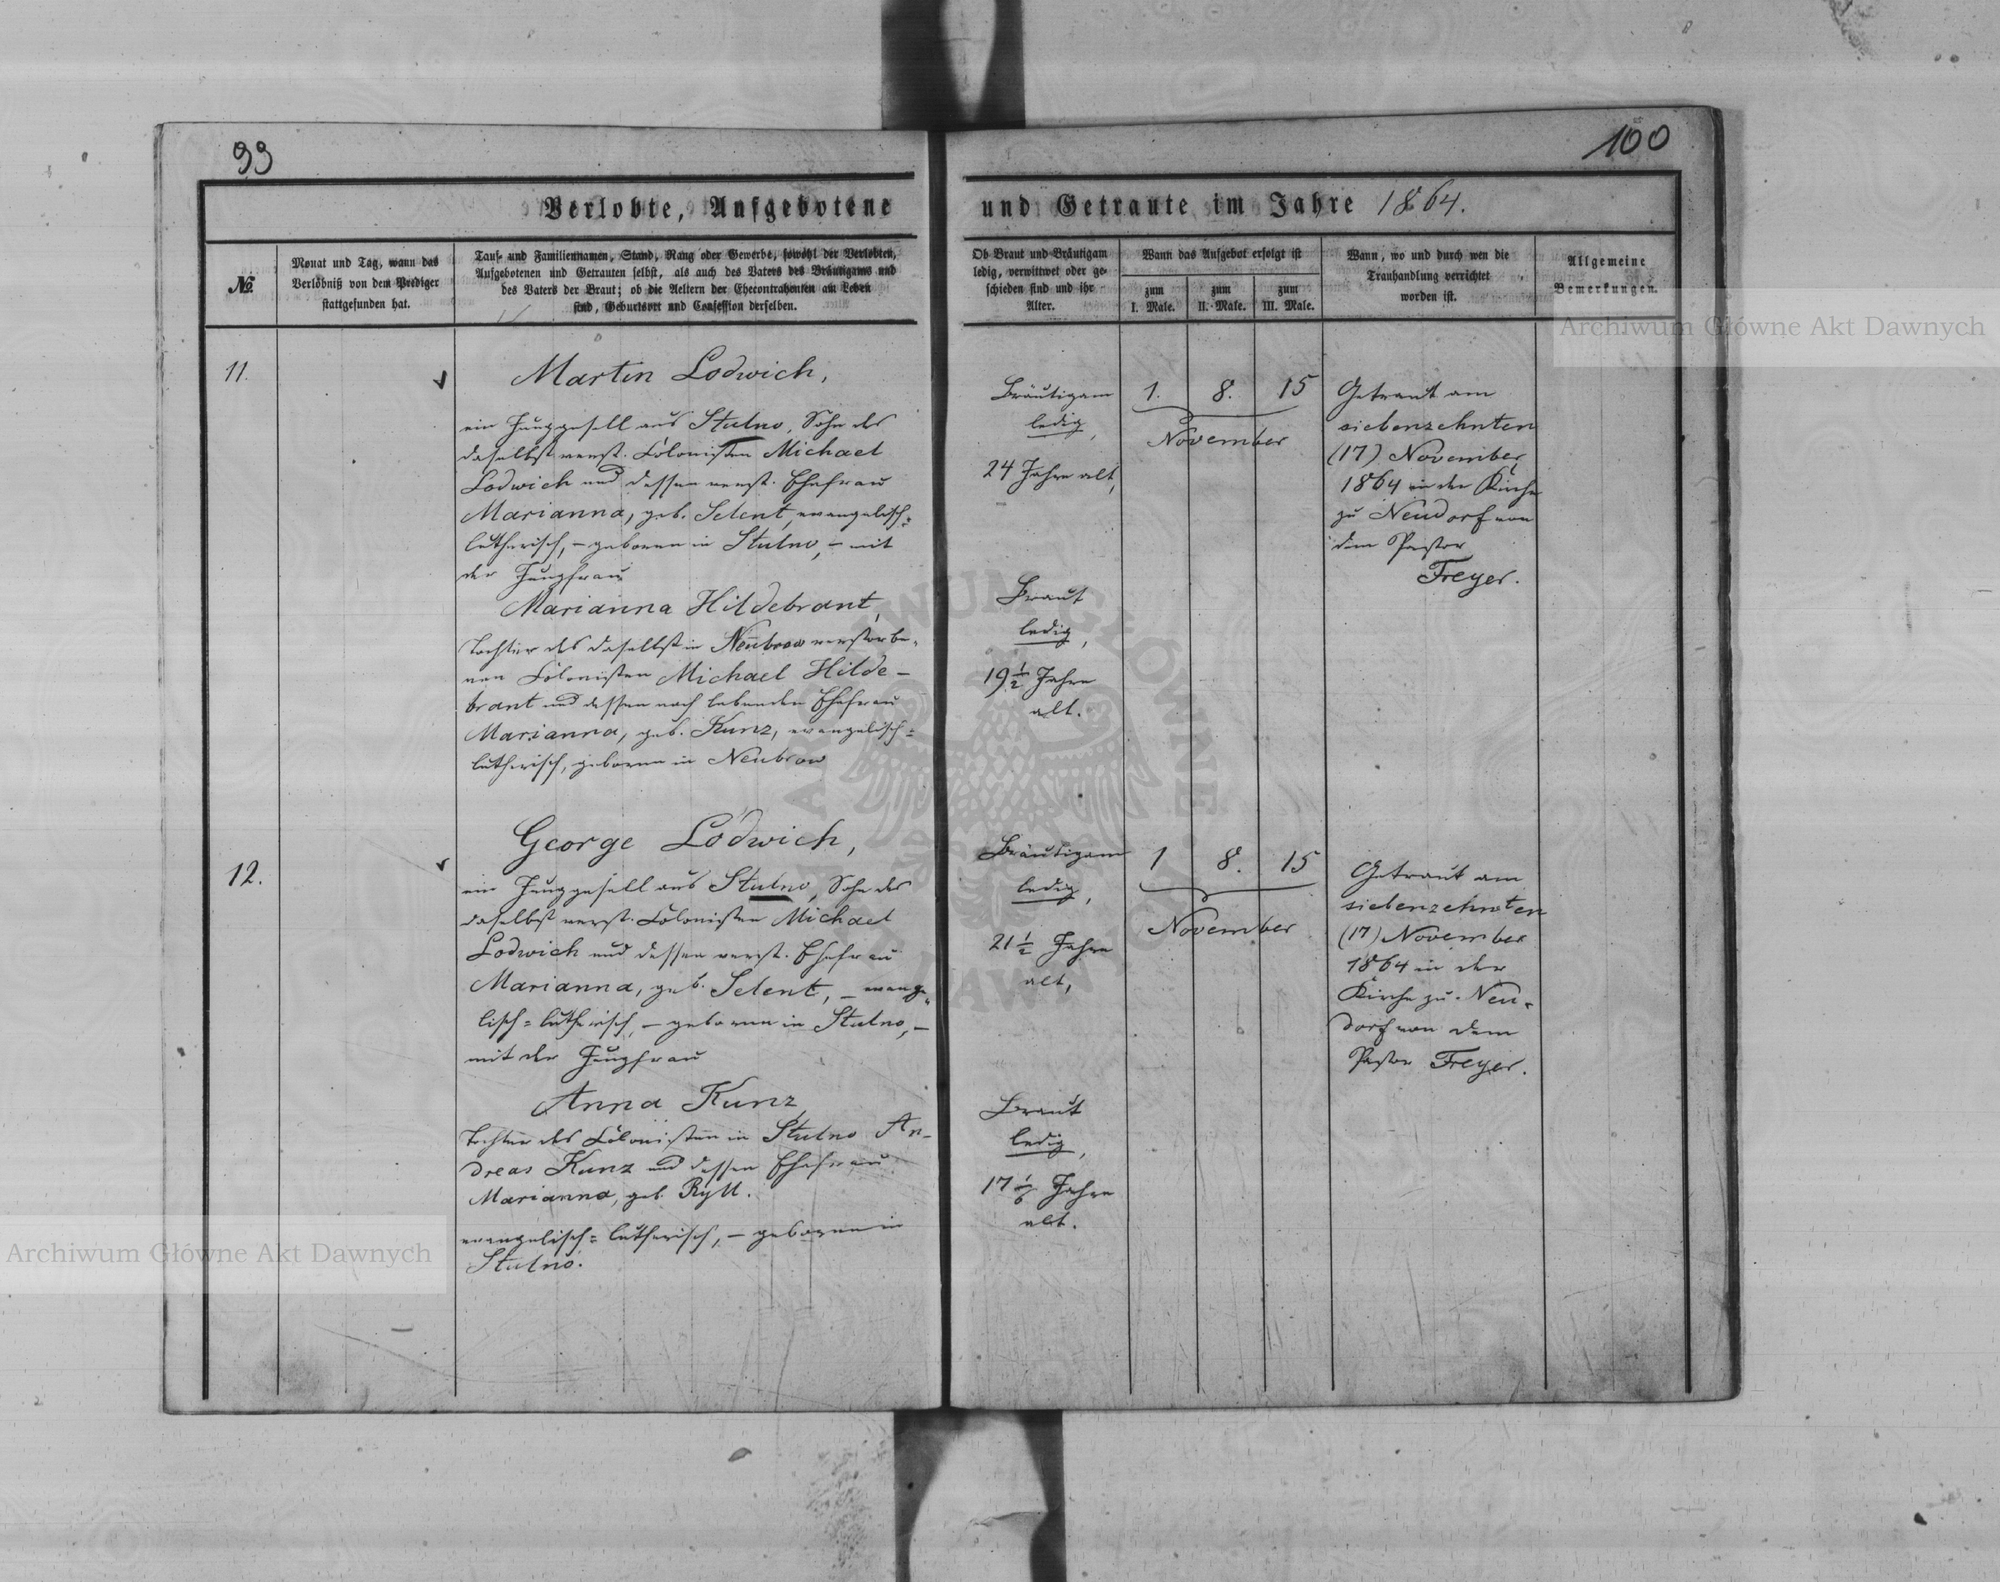 99
100
Verlobte, Aufgebotene
und Getraute im Jahre 1864.
№
Monat und Tag, wann das
Verlöbniß von dem Prediger
stattgefunden hat.
Tauf- und Familiennamen, Stand, Rang oder Gewerbe, sowohl der Verlobten,
Aufgebotenen und Getrauten selbst, als auch des Vaters des Bräutigams und
des Vaters der Braut; ob die Aeltern der Ehecontrahenten am Leben
sind, Geburtsort und Confession derselben.
Ob Braut und Bräutigam
ledig, verwittwet oder ge-
schieden sind und ihr
Alter.
Wann das Aufgebot erfolgt ist
zum
I. Male.
zum
II. Male.
zum
III. Male.
Wann, wo und durch wen die
Trauhandlung verrichtet
worden ist.
Allgemeine
Bemerkungen.
11.
Martin Lodwich,
ein Junggesell aus Stulno, Sohn des
daselbst verst. Colonisten Michael
Lodwich und dessen verst. Ehefrau
Marianna, geb. Selent, evangelisch=
lutherisch, – geboren in Stulno, – mit
der Jungfrau
Marianna Hildebrant,
Tochter des daselbst in Neubrow verstorbe-
nen Colonisten Michael Hilde-
brant und dessen noch lebenden Ehefrau
Marianna, geb. Kunz, evangelisch=
lutherisch, geboren in Neubrow
Bräutigam
ledig,
24 Jahre alt,
Braut
ledig,
19 1/2 Jahre
alt.
1. 8. 15
November
Getraut am
siebenzehnten
(17) November
1864 in der Kirche
zu Neudorf von
dem Pastor
Freyer.
12.
George Lodwich,
ein Junggesell aus Stulno, Sohn des
daselbst verst. Colonisten Michael
Lodwich und dessen verst. Ehefrau
Marianna, geb. Selent, – evange-
lisch=lutherisch, – geboren in Stulno, –
mit der Jungfrau
Anna Kunz,
Tochter des Colonisten in Stulno An-
dreas Kunz und dessen Ehefrau
Marianna, geb. Ryll.
evangelisch=lutherisch, – geboren in
Stulno.
Bräutigam
ledig,
21 1/2 Jahre
alt,
Braut
ledig,
17 1/6 Jahre
alt.
1 8. 15
November
Getraut am
siebenzehnten
(17) November
1864 in der
Kirche zu Neu-
dorf von dem
Pastor Freyer.
Archiwum Główne Akt Dawnych
Archiwum Główne Akt Dawnych
ARCHIWUM GŁÓWNE AKT DAWNYCH